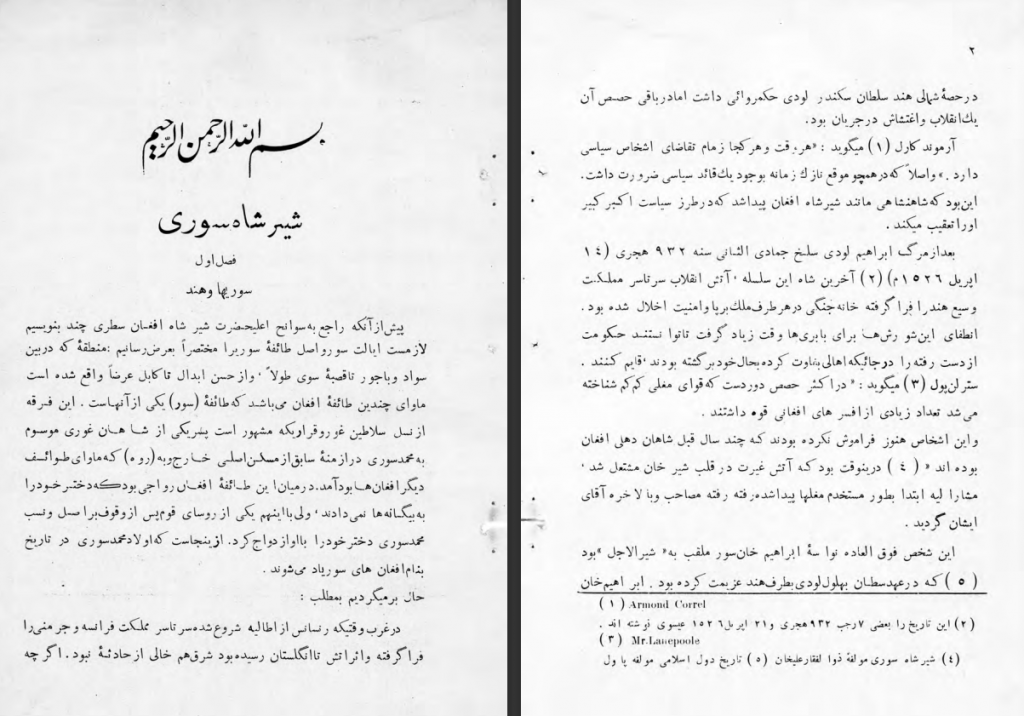 بسم الله الرحمن الرحیم
شیر شاه سوری
فصل اول
سوریها و هند
پیش از آنکه راجع به سوانح اعلیحضرت شیر شاه افغان سطری چند بنویسیم
لازمست ایالت سور و اصل طائفهٔ سوریرا مختصراً بعرض رسانیم : منطقهٔ که دربین
سواد و باجور تا قصبهٔ سوی طولاً ، و از حسن ابدال تا کابل عرضاً واقع شده است
ماوای چندین طائفهٔ افغان می‌باشد که طائفهٔ (سور) یکی از آنهاست . این فرقه
از نسل سلاطین غور و قراریکه مشهور است پسر یکی از شاهان غوری موسوم
به محمد سوری در ازمنهٔ سابق از مسکن اصلی خارج و به (روه) که ماوای طوائف
دیگر افغان‌ها بود آمد. در میان این طائفهٔ افغان رواجی بود که دختر خود را
به بیگانه‌ها نمی‌دادند ، ولی با اینهم یکی از روسای قوم پس از وقوف بر اصل و نسب
محمد سوری دختر خود را با او ازدواج کرد. از ینجاست که اولاد محمد سوری در تاریخ
بنام افغان های سور یاد می‌شوند .
حال بر میگردیم بمطلب :
در غرب وقتیکه رنسانس از اطالیه شروع شده سرتاسر مملکت فرانسه و جرمنی را
فرا گرفته و اثراتش تا انگلستان رسیده بود شرق هم خالی از حادثهٔ نبود . اگر چه
۲
در حصهٔ شمالی هند سلطان سکندر لودی حکمروائی داشت اما در باقی حصص آن
یك انقلاب و اغتشاش در جریان بود .
آرموند کارل (۱) میگوید : « هر وقت و هر کجا زمام تقاضای اشخاص سیاسی
دارد . » و اصلاً که در همچو موقع نازك زمانه بوجود یك قائد سیاسی ضرورت داشت .
این بود که شاهنشاهی مانند شیر شاه افغان پیدا شد که در طرز سیاست اکبر کبیر
او را تعقیب میکند .
بعد از مرگ ابراهیم لودی سلخ جمادی الثانی سنه ۹۳۲ هجری (۱٤
اپریل ۱۵۲٦م) (۲) آخرین شاه این سلسله ، آتش انقلاب سرتاسر مملکت
وسیع هند را فرا گرفته خانه جنگی در هر طرف ملك برپا و امنیت اخلال شده بود .
انطفای این شورش‌ها برای بابری‌ها وقت زیاد گرفت تا توانستند حکومت
از دست رفته را در جائیکه اهالی بغاوت کرده بحال خود برگشته بودند ، قایم کنند .
سترلن پول (۳) میگوید : « در اکثر حصص دوردست که قوای مغلی کم کم شناخته
می شد تعداد زیادی از افسر های افغانی قوه داشتند .
و این اشخاص هنوز فراموش نکرده بودند که چند سال قبل شاهان دهلی افغان
بوده اند » (٤) در ینوقت بود که آتش غیرت در قلب شیر خان مشتعل شد ،
مشارا لیه ابتدا بطور مستخدم مغلها پیدا شده رفته رفته مصاحب و بالاخره آقای
ایشان گردید .
این شخص فوق العاده نواسهٔ ابراهیم خان سور ملقب به « شیر الاجل » بود
(۵) که در عهد سطان بهلول لودی بطرف هند عزیمت کرده بود . ابراهیم خان
(۱) Armond Correl
(۲) این تاریخ را بعضی ۷ رجب ۹۳۲ هجری و ۲۱ اپریل ۱۵۲٦ عیسوی نوشته اند .
(۳) Mr. Lanepoole
(٤) شیر شاه سوری مولفهٔ ذوا لفقار علیخان (۵) تاریخ دول اسلامی مولفه یا ول